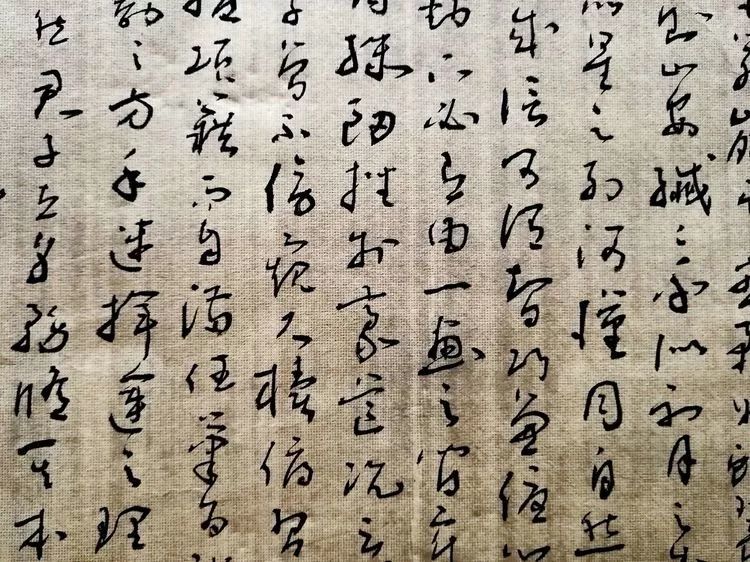 則山安纖〻乎似初月之出
眾星之列河漢同自然
成信可謂智巧兼優心
動下必有由一畫之間變
內殊衄挫於豪芒況云
字曾不傍窺尺牘俯習
援項籍而自滿任筆為體
效之方手迷揮運之理
然君子立身務脩其本